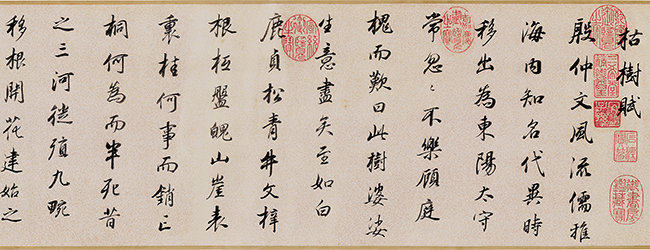 枯樹賦
殷仲文風流儒雅
海內知名代異時
移出為東陽太守
常忽〻不樂顧庭
槐而歎曰此樹婆娑
生意盡矣至如白
鹿貞松青牛文梓
根柢盤魄山崖表
裏桂何事而銷亡
桐何為而半死昔
之三河徙殖九畹
移根開花建始之